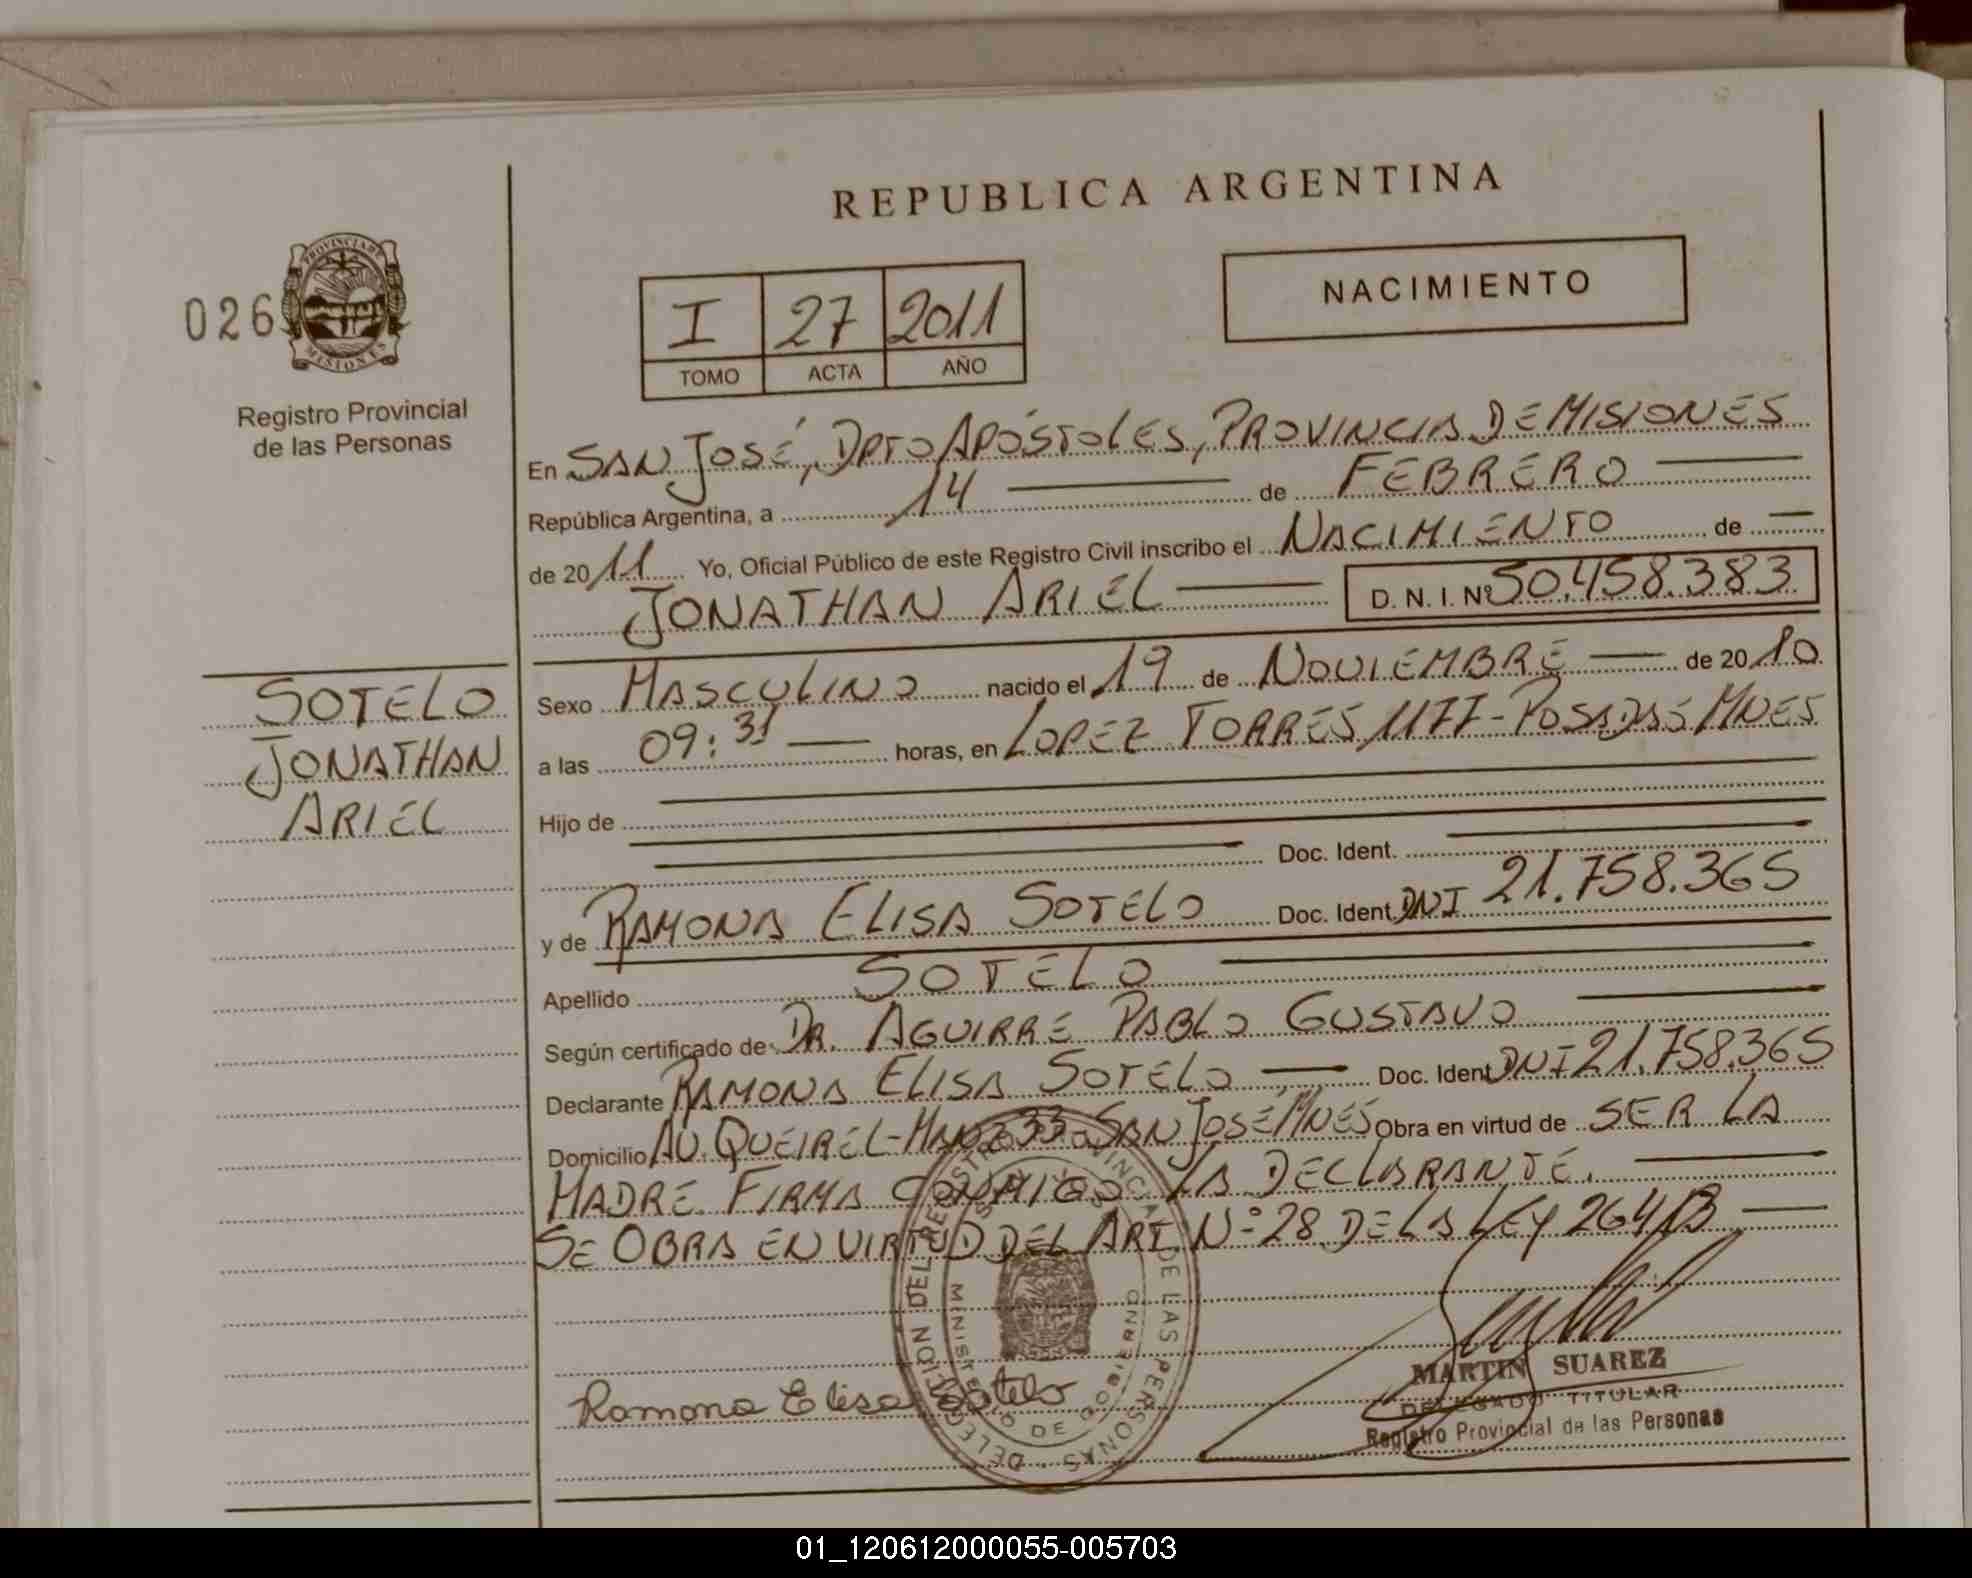 REPUBLICA ARGENTINA
026
PROVINCIA DE
MISIONES
Registro Provincial
de las Personas
I 27 2011
TOMO ACTA AÑO
NACIMIENTO
En SAN JOSÉ, DPTO APÓSTOLES, PROVINCIA DE MISIONES
República Argentina, a 14 de FEBRERO
de 2011 Yo, Oficial Público de este Registro Civil inscribo el NACIMIENTO de
JONATHAN ARIEL D. N. I. Nº 50.458.383
SOTELO
JONATHAN
ARIEL
Sexo MASCULINO nacido el 19 de NOVIEMBRE de 2010
a las 09:31 horas, en LOPEZ TORRES 1177 - POSADAS MNES
Hijo de
Doc. Ident.
y de RAMONA ELISA SOTELO Doc. Ident. DNI 21.758.365
Apellido SOTELO
Según certificado de DR. AGUIRRE PABLO GUSTAVO
Declarante RAMONA ELISA SOTELO Doc. Ident DNI 21.758.365
Domicilio AV. QUEIREL - MANZ 33 - SAN JOSÉ, MNES Obra en virtud de SER LA
MADRE. FIRMA CONMIGO LA DECLARANTE.
SE OBRA EN VIRTUD DEL ART. Nº 28 DE LA LEY 26413
Ramona Elisa Sotelo
DELEGACION DEL REGISTRO PROVINCIAL DE LAS PERSONAS
MINISTERIO DE GOBIERNO
MARTIN SUAREZ
DELEGADO TITULAR
Registro Provincial de las Personas
01_120612000055-005703